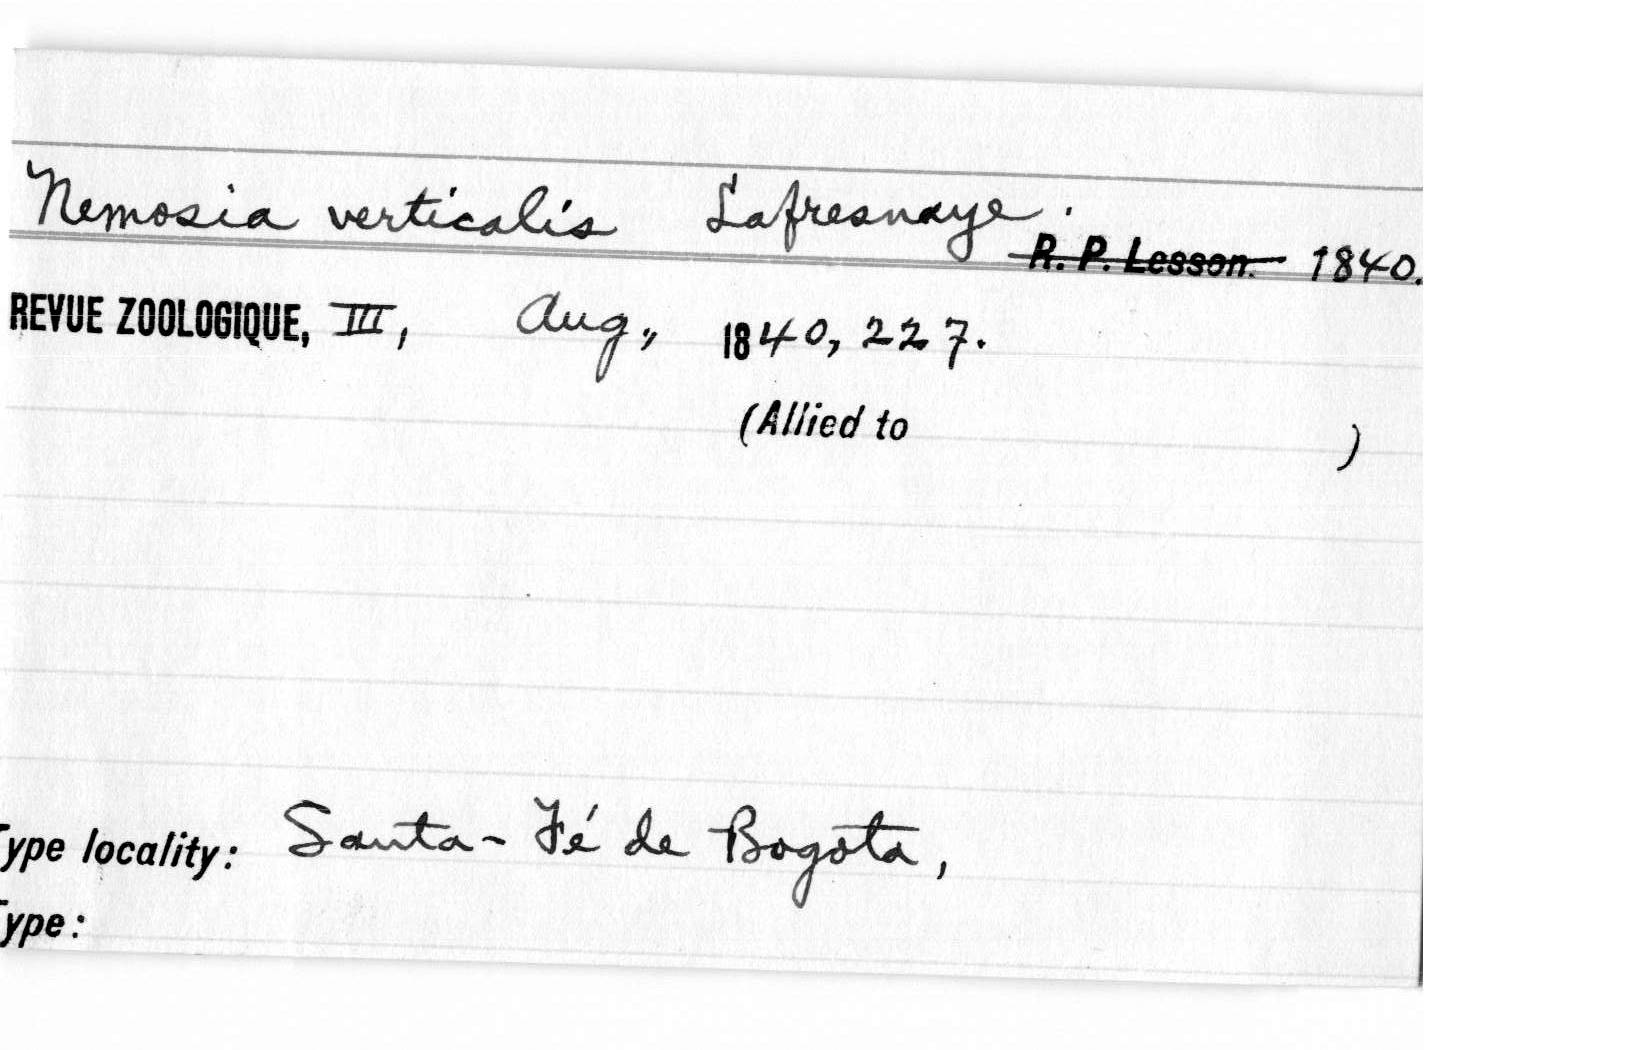 Nemosia verticalis Lafresnaye.
R. P. Lesson. 1840.
REVUE ZOOLOGIQUE, III, Aug., 1840, 227.
(Allied to )
Type locality: Santa-Fé de Bogota,
Type: